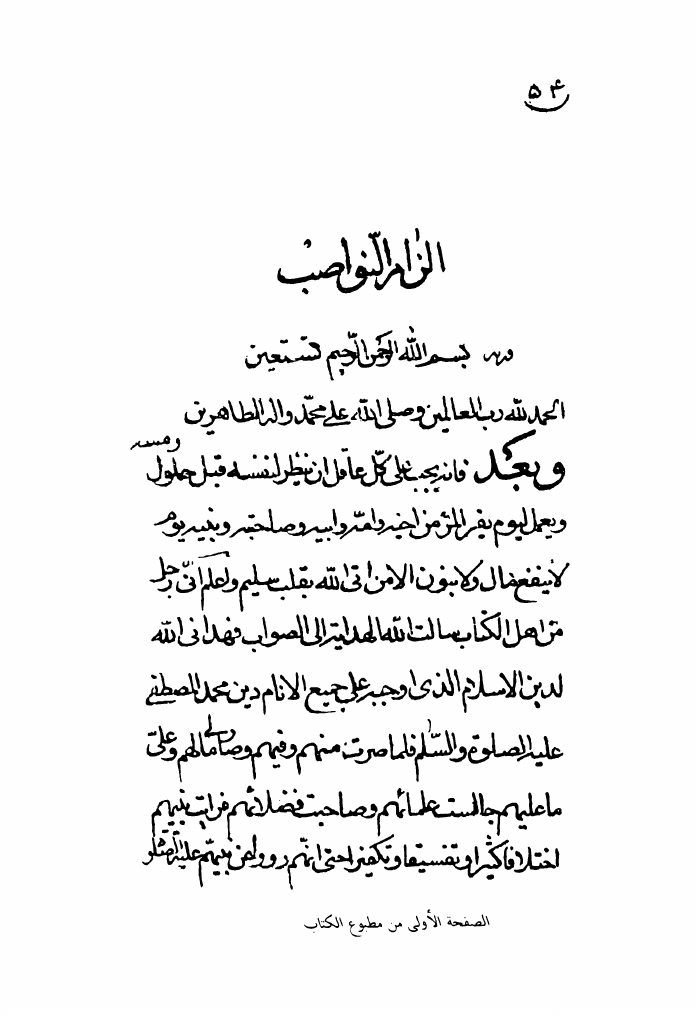 ۵۴
الزام النواصب
وبه بسم الله الرحمن الرحيم نستعين
الحمد لله رب العالمين وصلى الله على محمد واله الطاهرين
وبعد فانه يجب على كل عاقل ان ينظر لنفسه قبل حلول
رمسه
ويعمل ليوم يفر المرء من اخيه وامه وابيه وصاحبته وبنيه يوم
لا ينفع مال ولا بنون الا من اتى الله بقلب سليم واعلم انى رجل
من اهل الكتاب سالت الله الهداية الى الصواب فهدانى الله
لدين الاسلام الذى اوجبه على جميع الانام دين محمد المصطفى
عليه الصلوة والسلم فلما صرت منهم وفيهم وصار لى مالهم وعلىّ
ما عليهم جالست علمائهم وصاحبت فضلائهم فرايت بينهم
اختلافا كثيرا وتفسيقا وتكفيرا حتى انهم رووا عن نبيهم
الصفحة الأولى من مطبوع الكتاب